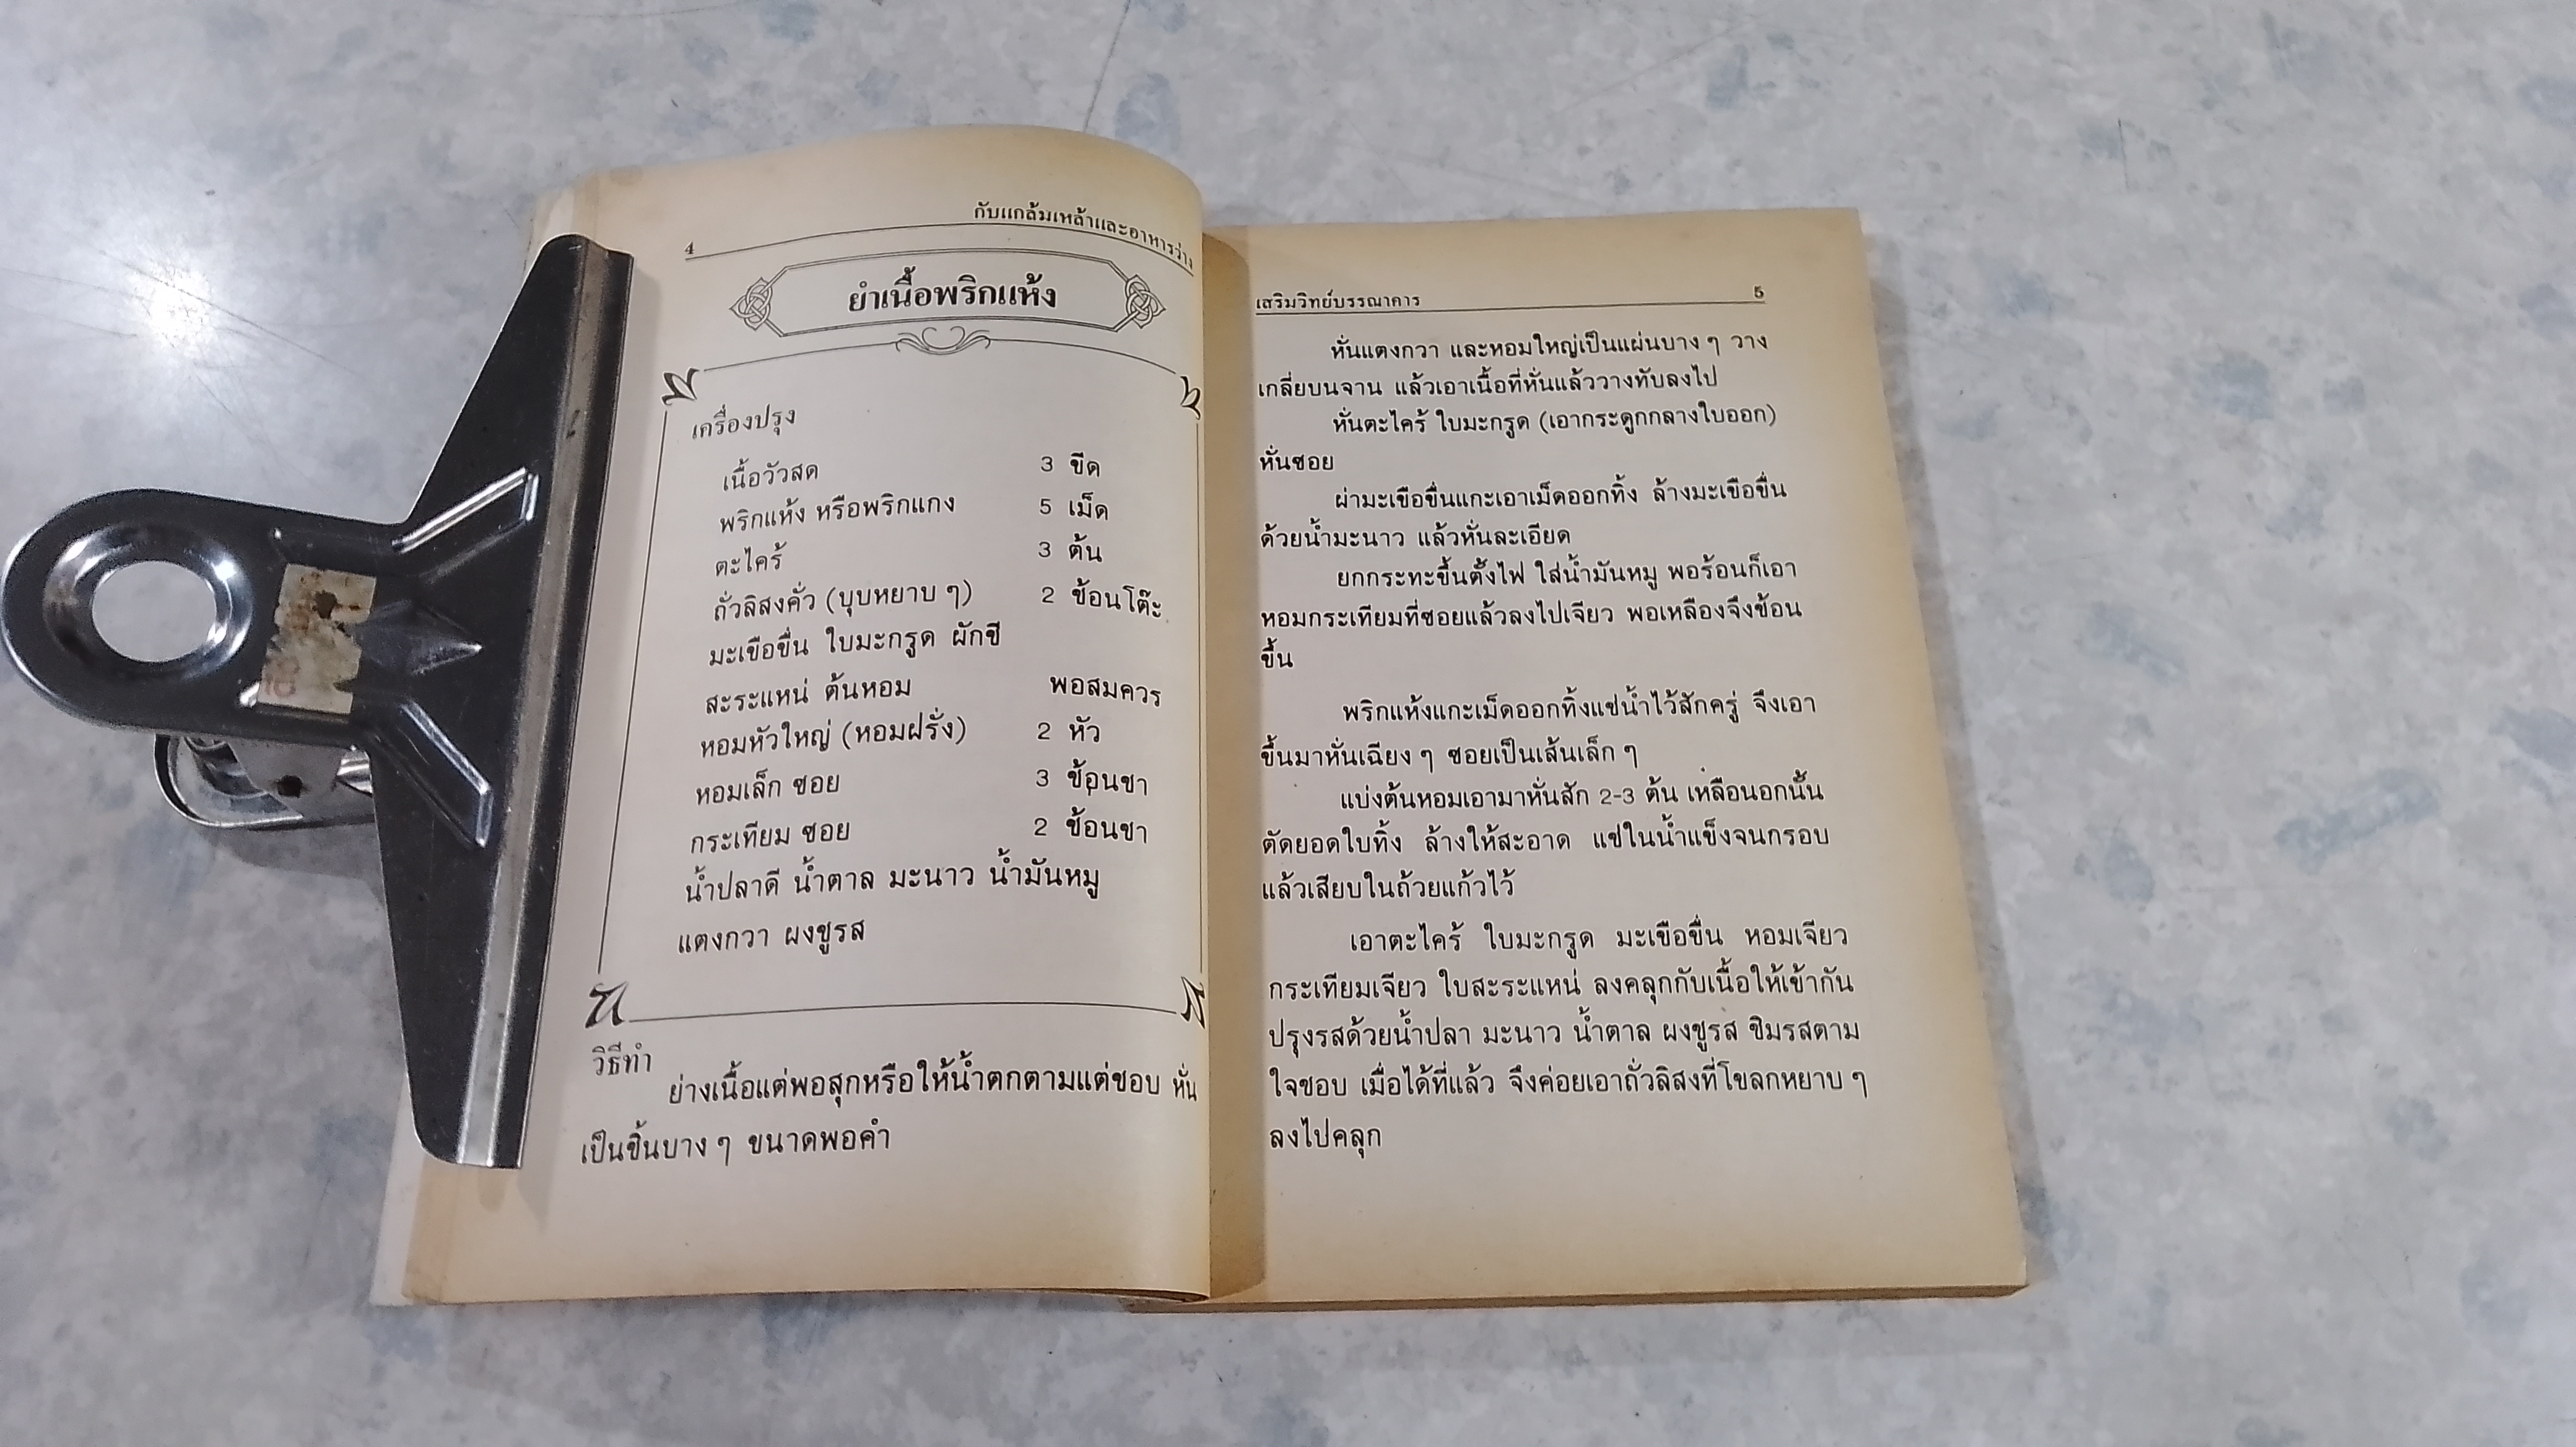 4
กับแกล้มเหล้าและอาหารว่าง
ยำเนื้อพริกแห้ง
เครื่องปรุง
เนื้อวัวสด 3 ขีด
พริกแห้ง หรือพริกแกง 5 เม็ด
ตะไคร้ 3 ต้น
ถั่วลิสงคั่ว (บุบหยาบ ๆ) 2 ช้อนโต๊ะ
มะเขือขื่น ใบมะกรูด ผักชี
สะระแหน่ ต้นหอม พอสมควร
หอมหัวใหญ่ (หอมฝรั่ง) 2 หัว
หอมเล็ก ซอย 3 ช้อนชา
กระเทียม ซอย 2 ช้อนชา
น้ำปลาดี น้ำตาล มะนาว น้ำมันหมู
แตงกวา ผงชูรส
วิธีทำ
ย่างเนื้อแต่พอสุกหรือให้น้ำตกตามแต่ชอบ หั่น
เป็นชิ้นบาง ๆ ขนาดพอคำ
เสริมวิทย์บรรณาคาร 5
หั่นแตงกวา และหอมใหญ่เป็นแผ่นบาง ๆ วาง
เกลี่ยบนจาน แล้วเอาเนื้อที่หั่นแล้ววางทับลงไป
หั่นตะไคร้ ใบมะกรูด (เอากระดูกกลางใบออก)
หั่นซอย
ผ่ามะเขือขื่นแกะเอาเม็ดออกทิ้ง ล้างมะเขือขื่น
ด้วยน้ำมะนาว แล้วหั่นละเอียด
ยกกระทะขึ้นตั้งไฟ ใส่น้ำมันหมู พอร้อนก็เอา
หอมกระเทียมที่ซอยแล้วลงไปเจียว พอเหลืองจึงช้อน
ขึ้น
พริกแห้งแกะเม็ดออกทิ้งแช่น้ำไว้สักครู่ จึงเอา
ขึ้นมาหั่นเฉียง ๆ ซอยเป็นเส้นเล็ก ๆ
แบ่งต้นหอมเอามาหั่นสัก 2-3 ต้น เหลือนอกนั้น
ตัดยอดใบทิ้ง ล้างให้สะอาด แช่ในน้ำแข็งจนกรอบ
แล้วเสียบในถ้วยแก้วไว้
เอาตะไคร้ ใบมะกรูด มะเขือขื่น หอมเจียว
กระเทียมเจียว ใบสะระแหน่ ลงคลุกกับเนื้อให้เข้ากัน
ปรุงรสด้วยน้ำปลา มะนาว น้ำตาล ผงชูรส ชิมรสตาม
ใจชอบ เมื่อได้ที่แล้ว จึงค่อยเอาถั่วลิสงที่โขลกหยาบ ๆ
ลงไปคลุก